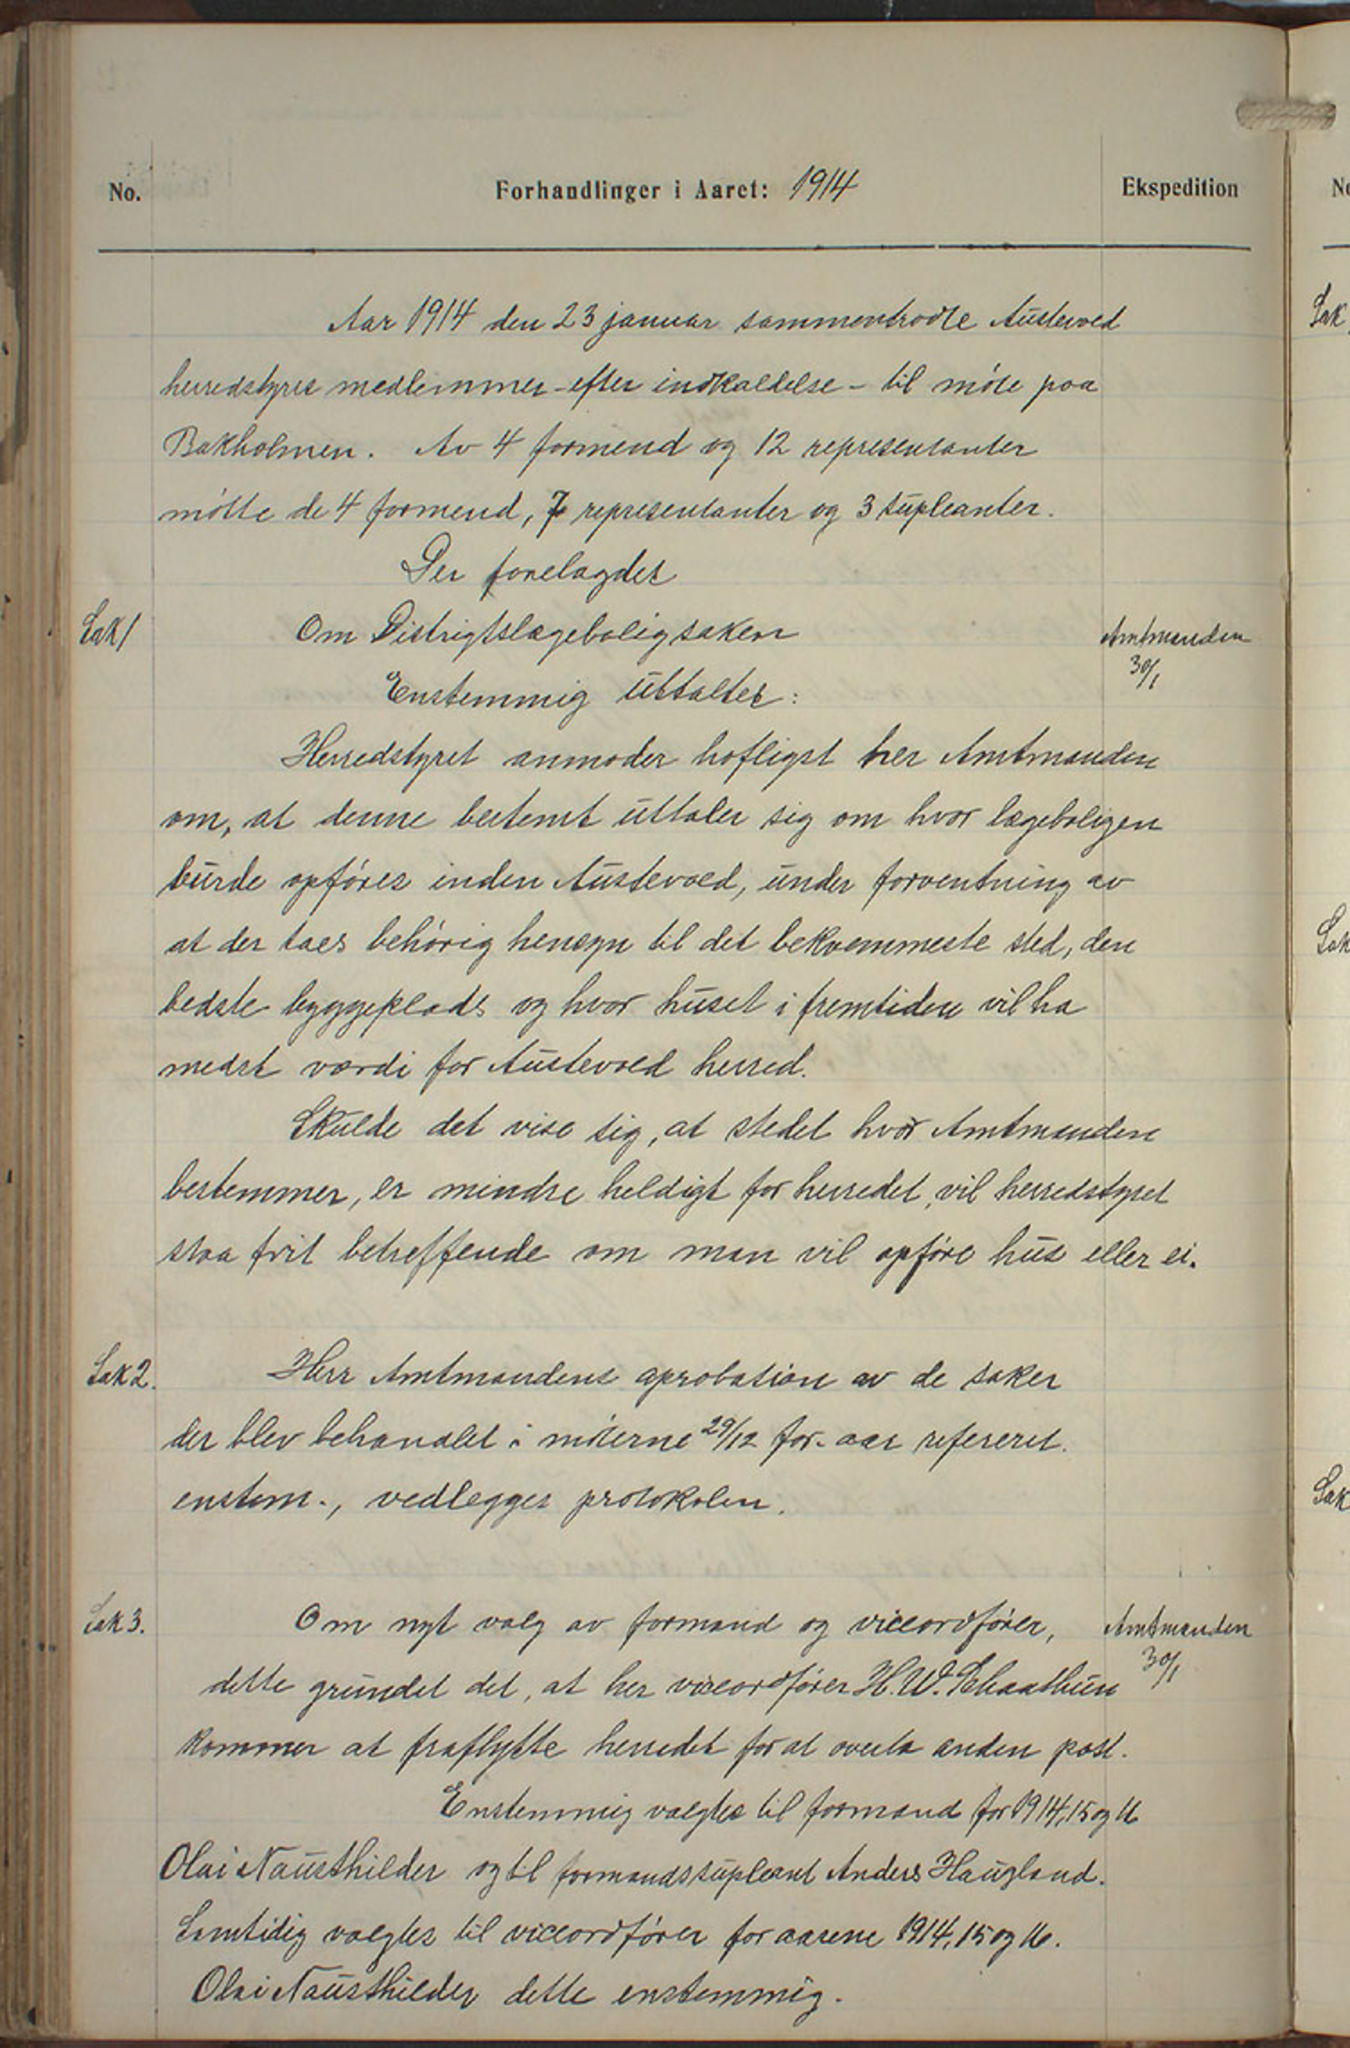 No. Forhandlinger i Aaret: 1914 Ekspedition
Aar 1914 den 23 januar sammentraadte Austevold
herredstyres medlemmer - efter indkaldelse - til møte paa
Bakholmen. Av 4 formend og 12 representanter
møtte de 4 formend, 7 representanter og 3 supleanter.
Der forelagdes
Sak 1 Om Distrigtslægeboligsaken Amtmanden
30/1
Enstemmig uttaltes:
Herredstyret anmoder høfligst her Amtmanden
om, at denne bestemt uttaler sig om hvor lægeboligen
burde opføres inden Austevold, under forventning av
at der taes behørig hensyn til det bekvemmeste sted, den
bedste byggeplads og hvor huset i fremtiden vil ha
medst værdi for Austevold herred.
Skulde det vise sig, at stedet hvor Amtmanden
bestemmer, er mindre heldigt for herredet, vil herredstyret
staa frit betreffende om man vil opføre hus eller ei.
Sak 2. Herr Amtmandens aprobation av de saker
der blev behandlet i møterne 29/12 for. aar refereret.
enstem., vedlegges protokolen.
Sak 3. Om nyt valg av formand og viceordfører, Amtmanden
30/1
dette grundet det, at her viceordfører H. W. Skaathun
kommer at fraflytte herredet for at overta anden post.
Enstemmig valgtes til formand for 1914, 15 og 16
Olai Nausthilder og til formandssupleant Anders Haugland.
Samtidig valgtes til viceordfører for aarene 1914, 15 og 16.
Olai Nausthilder dette enstemmig.
Sak
Sak
Sak